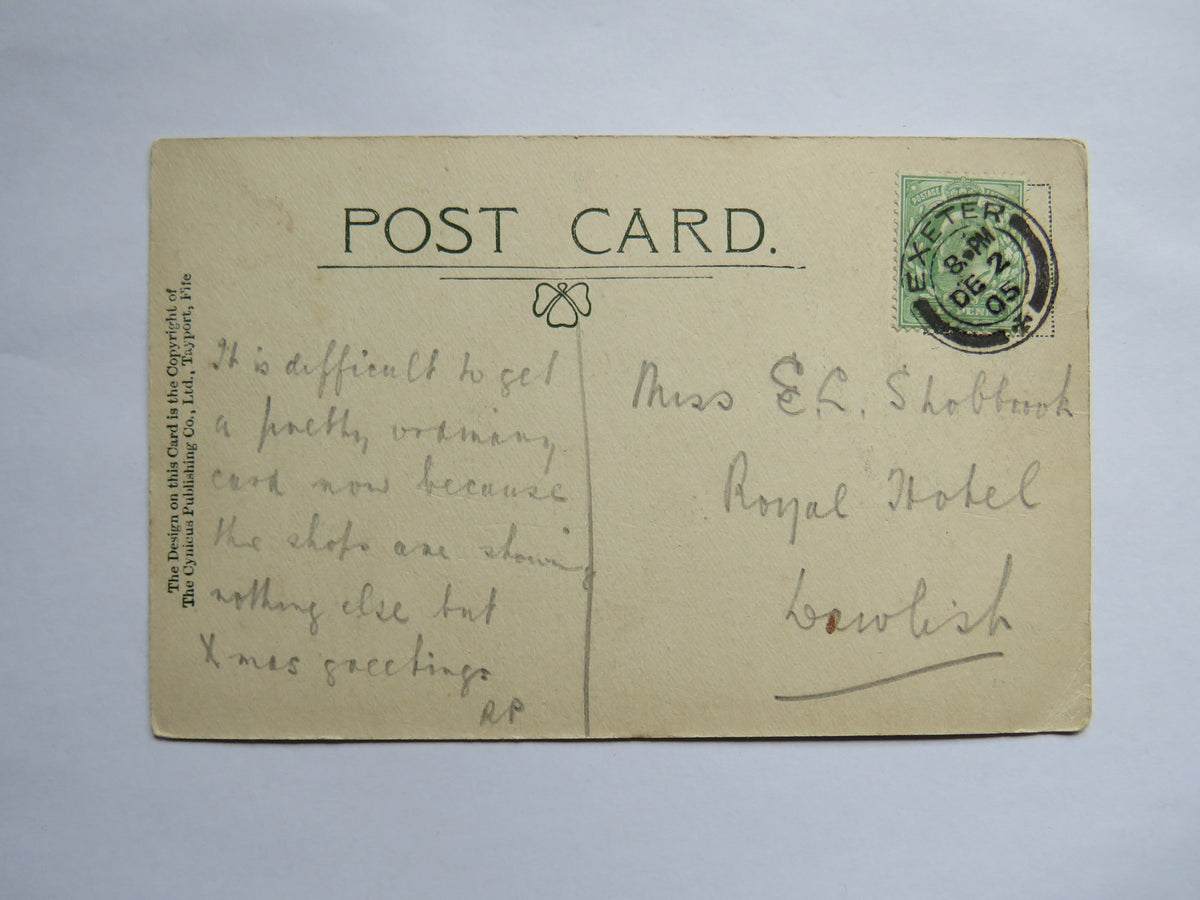 POST CARD.
The Design on this Card is the Copyright of
The Cynicus Publishing Co., Ltd., Tayport, Fife
It is difficult to get
a pretty ordinary
card now because
the shops are showing
nothing else but
Xmas greetings
RP
POSTAGE
EXETER
8. PM
DE 2
05
Miss E L. Shobbrook
Royal Hotel
Dawlish